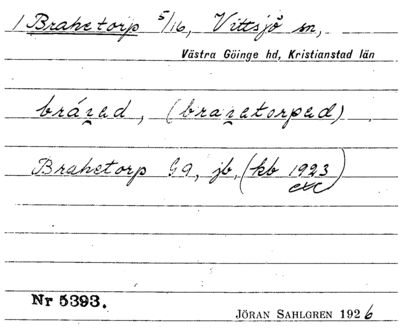 1 Brahetorp 5/16, Vittsjö sn,
Västra Göinge hd, Kristianstad län
Brahetorp G9, jb, (kb 1923)
exc
Nr 5393.
JÖRAN SAHLGREN 1926